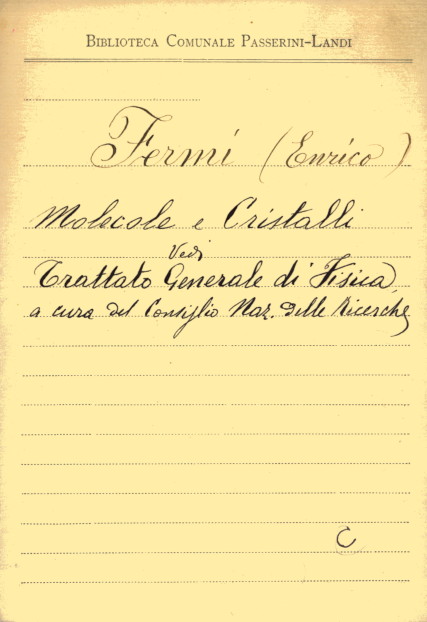 BIBLIOTECA COMUNALE PASSERINI-LANDI
Fermi (Enrico)
Molecole e Cristalli
Vedi
Trattato Generale di Fisica,
a cura del Consiglio Naz. delle Ricerche
C